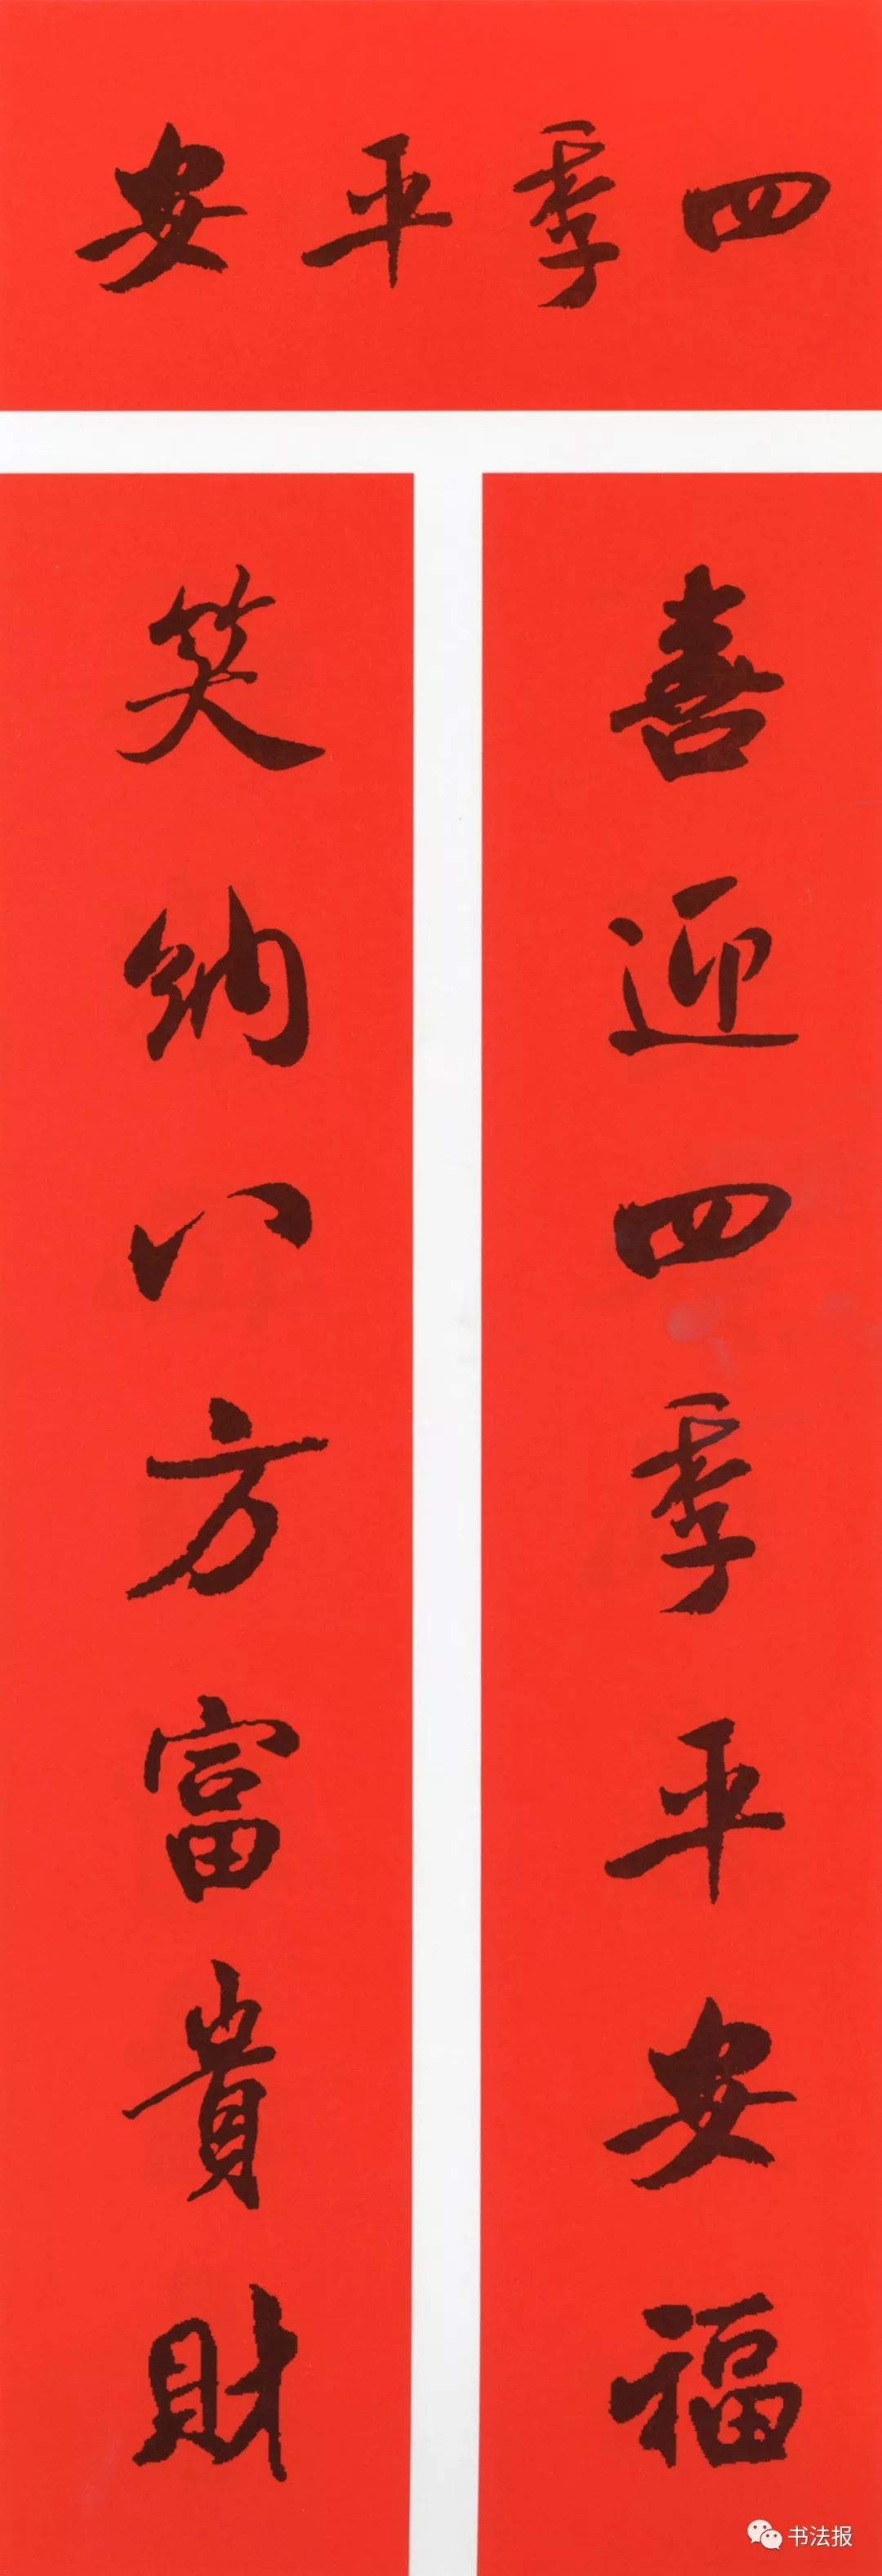 四季平安
喜迎四季平安福
笑纳八方富貴財
书法报